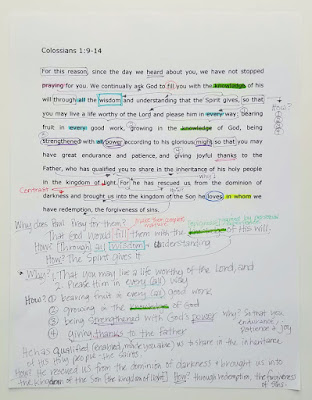 Colossians 1:9-14
For this reason, since the day we heard about you, we have not stopped
praying for you. We continually ask God to fill you with the knowledge of his
will through all the wisdom and understanding that the Spirit gives, so that
How?
you may live a life worthy of the Lord and please him in every way: bearing
fruit in every good work, growing in the knowledge of God, being
strengthened with all power according to his glorious might so that you may
have great endurance and patience, and giving joyful thanks to the
Father, who has qualified you to share in the inheritance of his holy people
in the kingdom of light. For he has rescued us from the dominion of
Contrast
darkness and brought us into the kingdom of the Son he loves, in whom we
have redemption, the forgiveness of sins.
Why does Paul pray for them?
That God would fill them with the knowledge of His will.
How? Through all wisdom + understanding
How? The Spirit gives it
Why? 1. That you may live a life worthy of the Lord, and
2. Please Him in every (all) way
How? ① bearing fruit in every (all) good work
② growing in the knowledge of God
③ being strengthened with God's power Why? So that you
endurance,
patience + joy
④ giving thanks to the father
He has qualified us to share in the inheritance
of His holy people - the saints.
How? He rescued us from the dominion of darkness + brought us into
the kingdom of the Son (the kingdom of light) How? through redemption, the forgiveness
of sins.